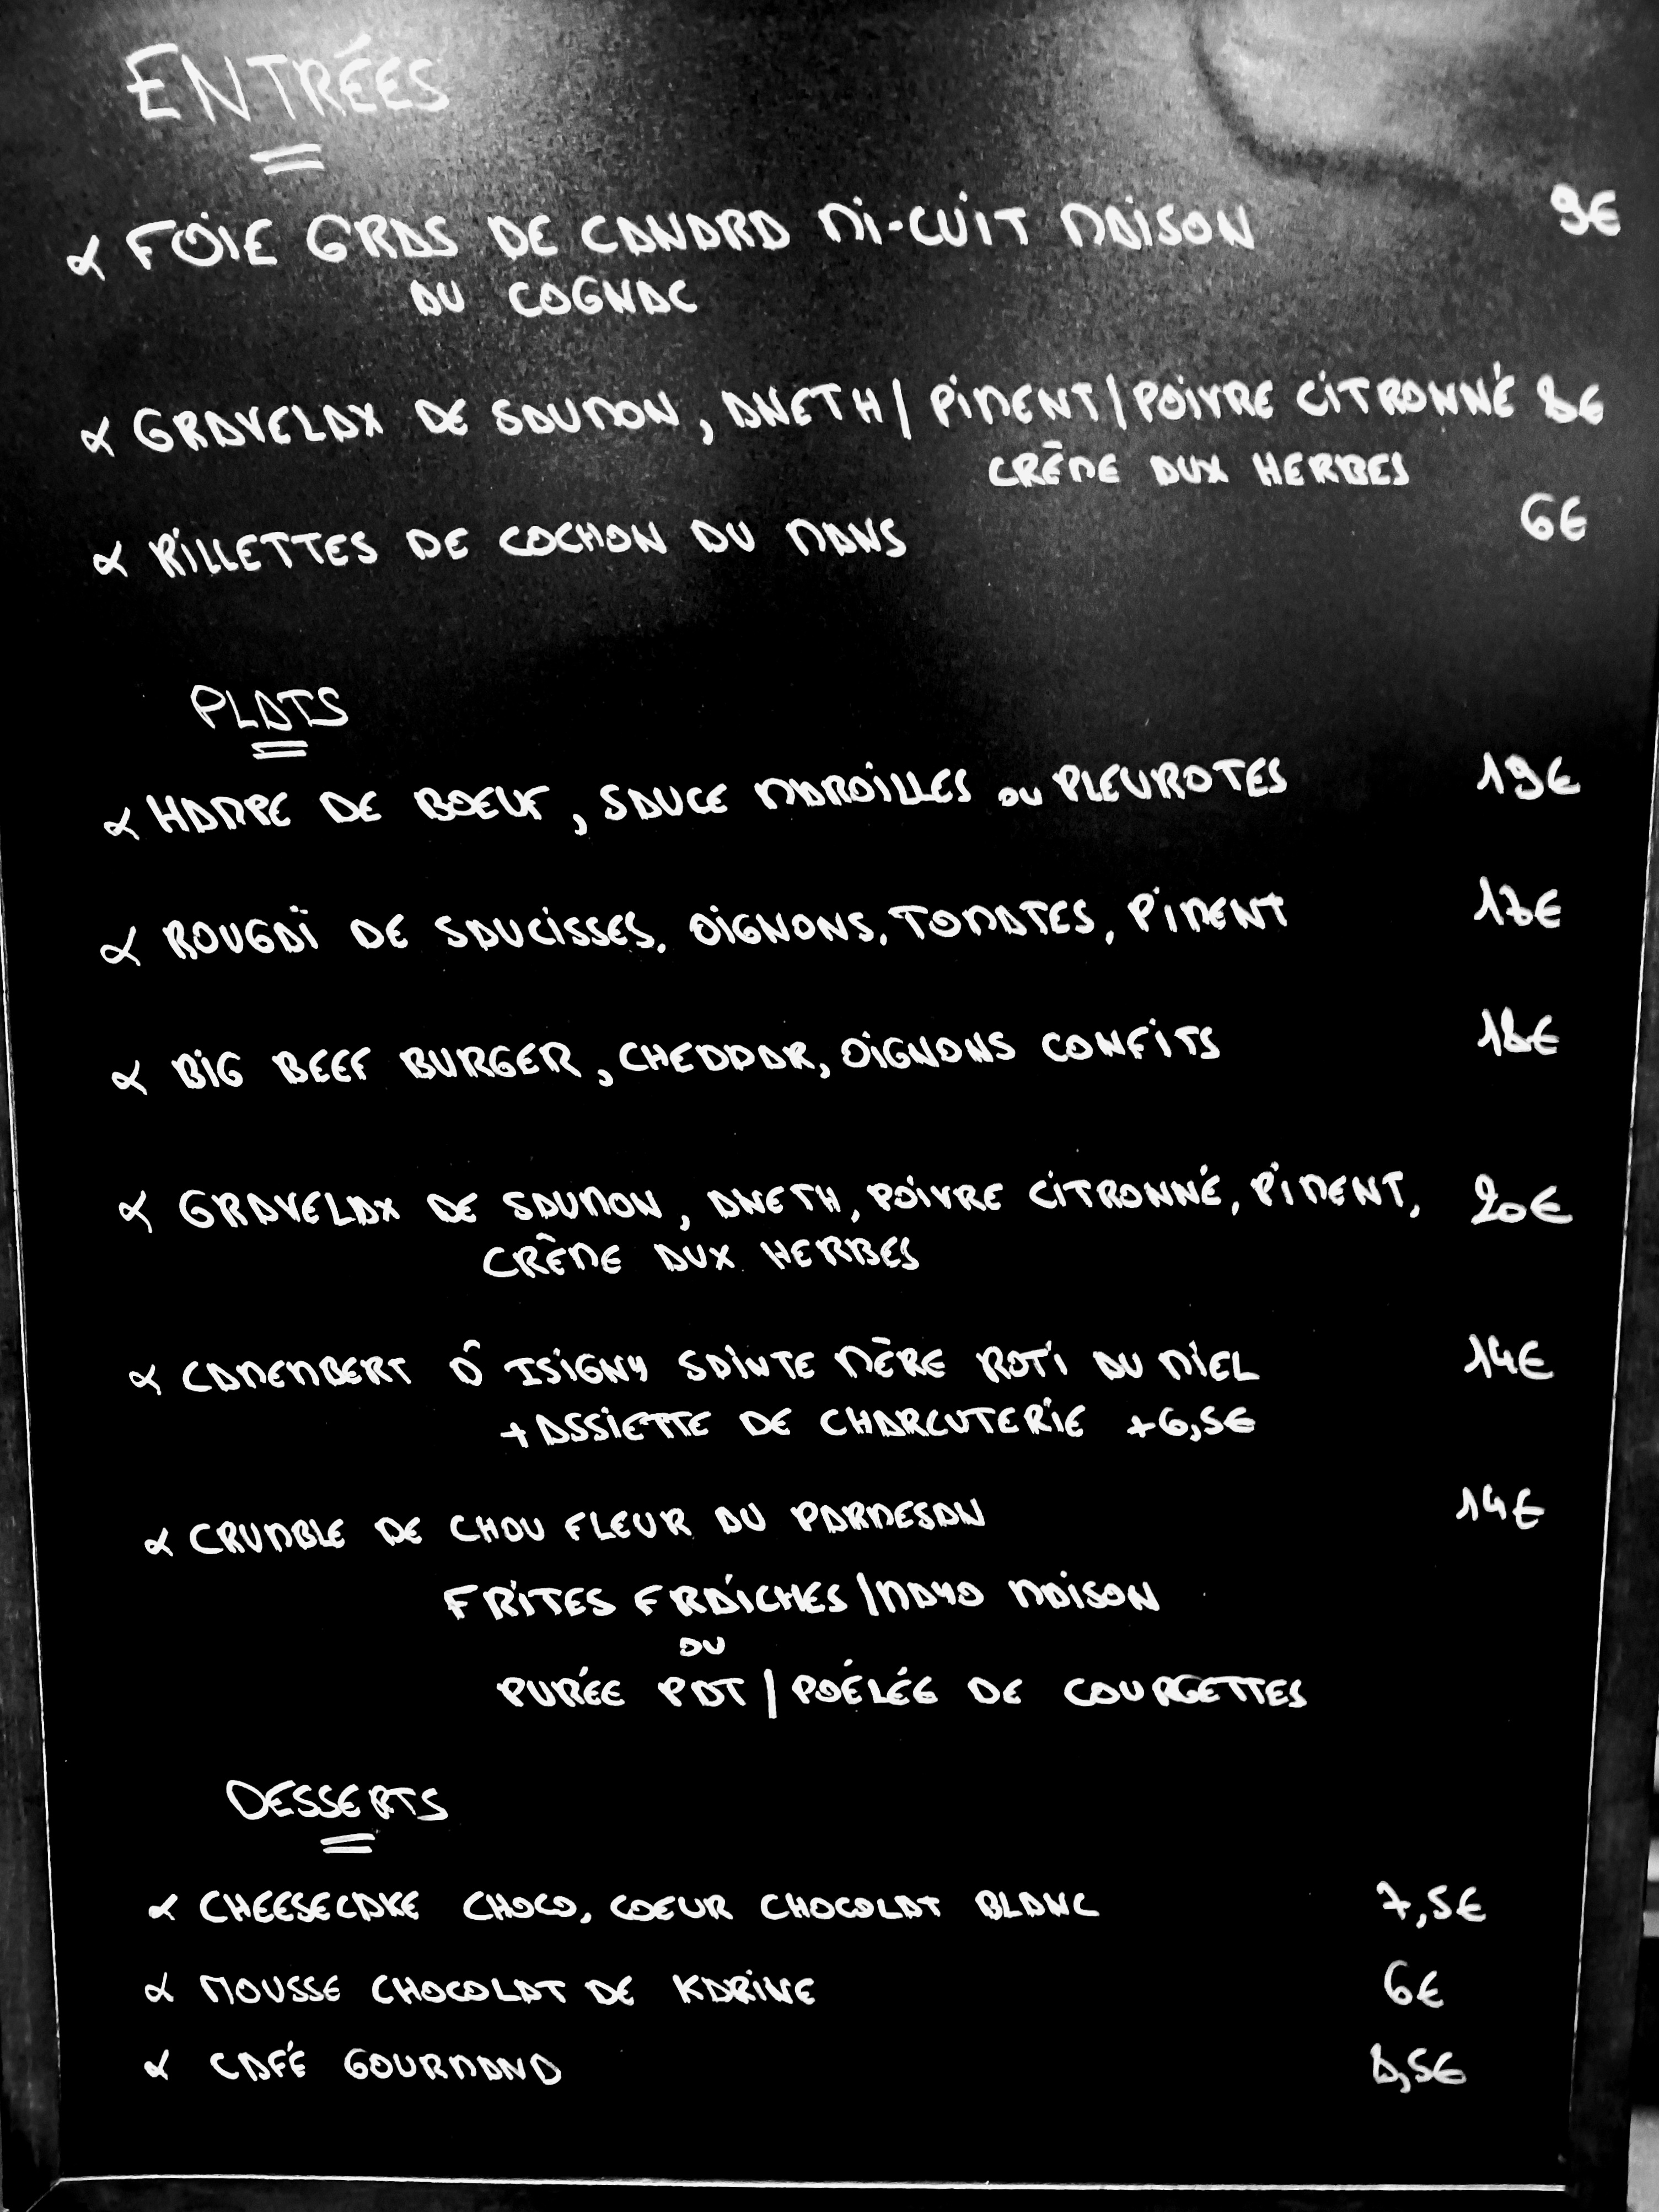 ENTRÉES
FOIE GRAS DE CANARD MI-CUIT MAISON 9€
AU COGNAC
GRAVELAX DE SAUMON, ANETH / PIMENT / POIVRE CITRONNÉ 8€
CRÈME AUX HERBES
RILLETTES DE COCHON DU MANS 6€
PLATS
HAMPE DE BOEUF, SAUCE MAROILLES OU PLEUROTES 19€
ROUGAÏ DE SAUCISSES, OIGNONS, TOMATES, PIMENT 17€
BIG BEEF BURGER, CHEDDAR, OIGNONS CONFITS 18€
GRAVELAX DE SAUMON, ANETH, POIVRE CITRONNÉ, PIMENT, 20€
CRÈME AUX HERBES
CAMEMBERT Ô ISIGNY SAINTE MÈRE ROTI AU MIEL 14€
+ ASSIETTE DE CHARCUTERIE +6,5€
CRUMBLE DE CHOU FLEUR AU PARMESAN 14€
FRITES FRAÎCHES / MAYO MAISON
OU
PURÉE PDT / POÉLÉE DE COURGETTES
DESSERTS
CHEESECAKE CHOCO, COEUR CHOCOLAT BLANC 7,5€
MOUSSE CHOCOLAT DE KARINE 6€
CAFÉ GOURMAND 8,5€